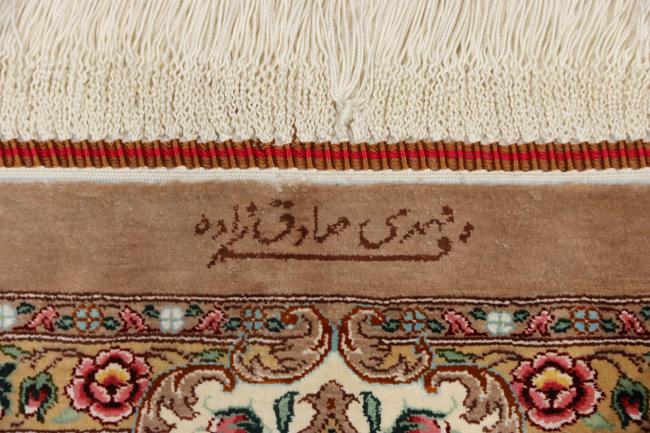 مهدی صادق زاده